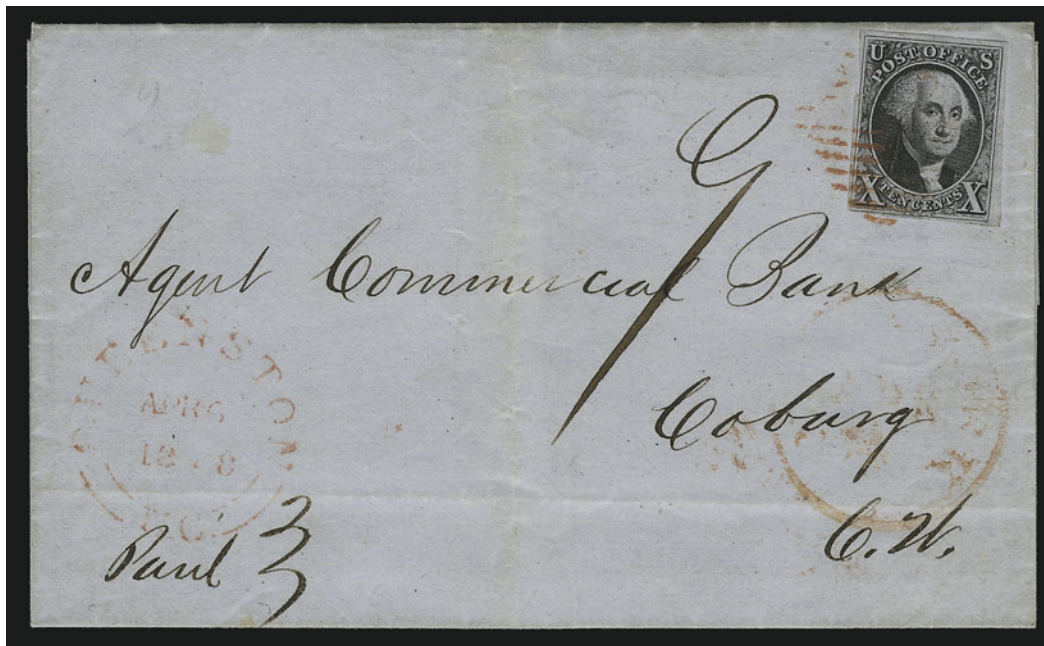 U S
POST OFFICE
X TEN CENTS X
9
Agent Commercial Bank
Coburg
C.W.
APR 6
Paid 3